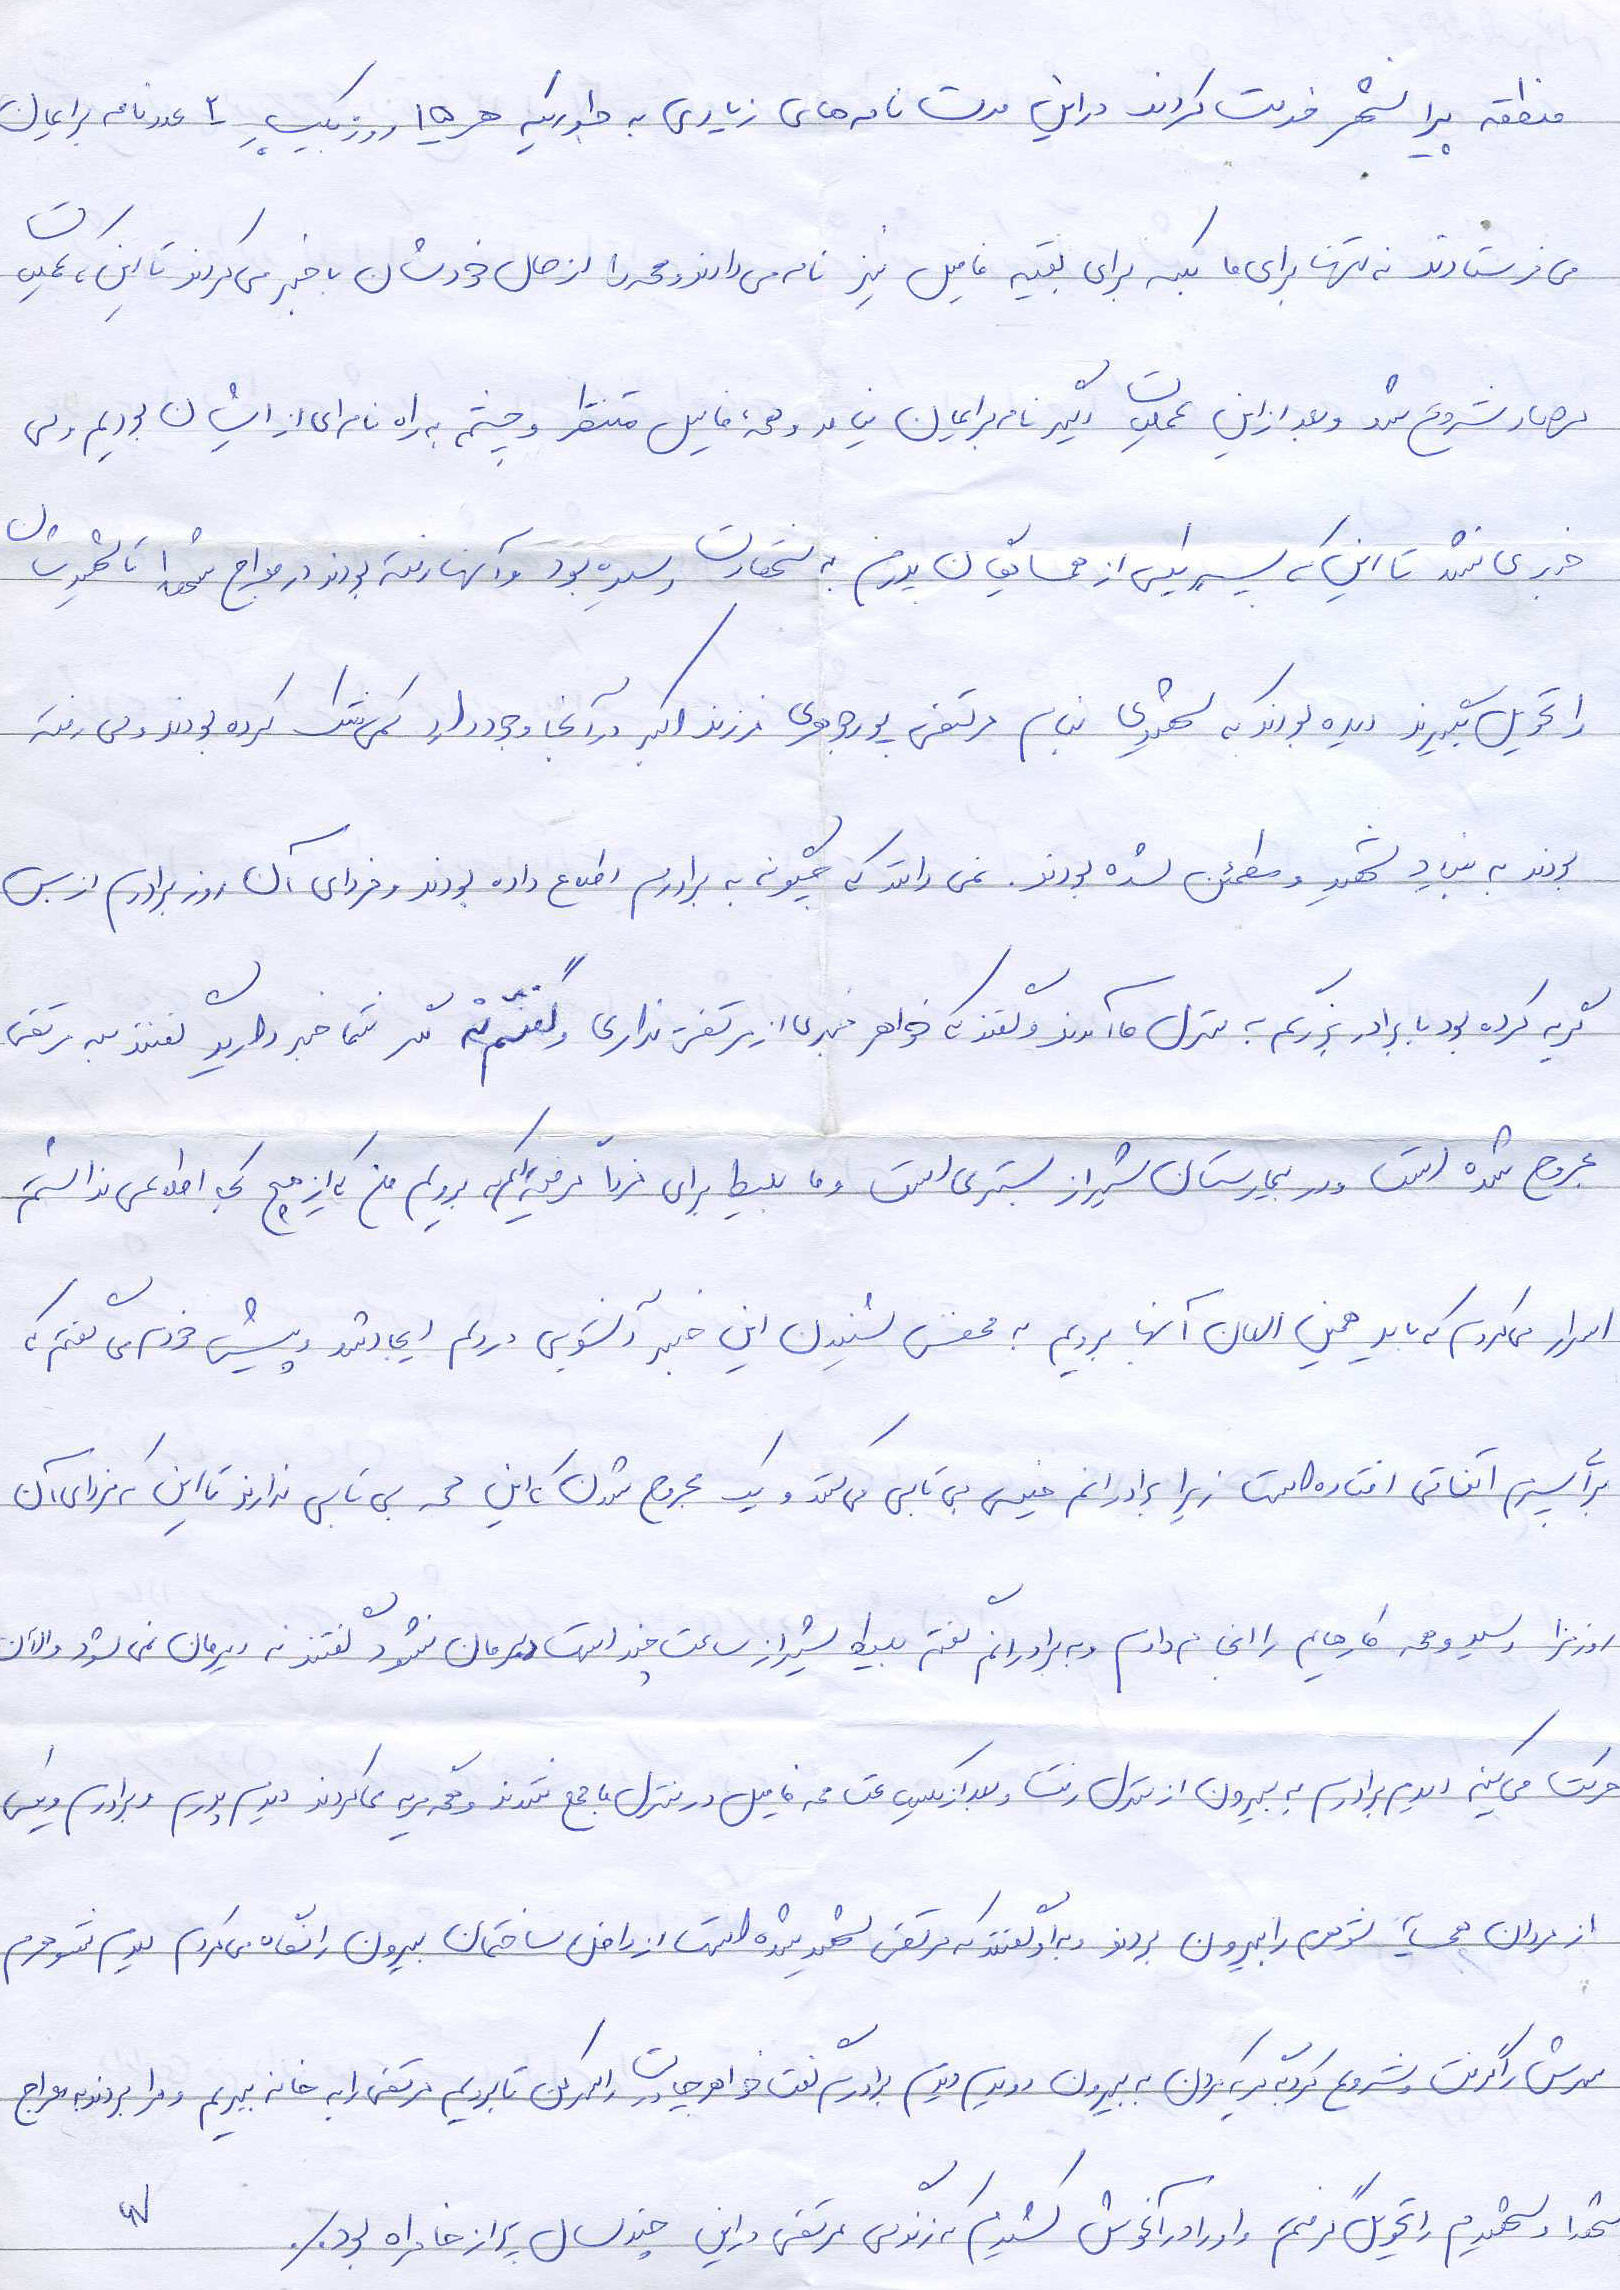 منطقه پیرانشهر خدمت کردند در این مدت نامه‌های زیادی به طوریکه هر ۱۵ روز یکبار ۲ عدد نامه برایمان
می‌فرستادند نه تنها برای ما بلکه برای بقیه فامیل نیز نامه می‌دادند و همه را از حال خودشان با خبر می‌کردند تا این که عملیات
مرصاد شروع شد و بعد از این عملیات دیگر نامه برایمان نیامد و همهٔ فامیل منتظر و چشم به راه نامه‌ای از ایشان بودیم ولی
خبری نشد تا این که پسر یکی از همسایگان پدرم به شهادت رسیده بود و آنها رفته بودند در معراج شهدا تا شهیدشان
را تحویل بگیرند دیده بودند که شهیدی بنام مرتضی پورجوهری فرزند اکبر در آنجا وجود دارد کمی شک کرده بودند ولی رفته
بودند به بنیاد شهید و مطمئن شده بودند. نمی دانند که چگونه به برادرم اطلاع داده بودند و فردای آن روز برادرم از بس
گریه کرده بود با برادر بزرگم به منزل ما آمدند و گفتند که خواهر خبری از مرتضی نداری و گفتم نه مگر شما خبر دارید گفتند بله مرتضی
مجروح شده است و در بیمارستان شیراز بستری است و ما بلیط برای فردا گرفته‌ایم که برویم من که از هیچ کجا اطلاعی نداشتم
اصرار می‌کردم که باید همین الان آنجا برویم به محض شنیدن این خبر آشوبی در دلم ایجاد شد و پیش خودم می‌گفتم که
برای پسرم اتفاقی افتاده است زیرا برادرانم خیلی بی تابی می‌کنند و یک مجروح شدن که این همه بی تابی ندارند تا این که فردای آن
روز فرا رسید و همه کارهایم را انجام دادم و به برادرانم گفتم بلیط شیراز ساعت چند است دیرمان نشود گفتند نه دیرمان نمی شود و الآن
حرکت می‌کنیم دیدم برادرم به بیرون از منزل رفت و بعد از یکساعت همه فامیل در منزل ما جمع شدند و همه گریه می‌کردند دیدم پدرم و برادرم و یکی
از مردان همسایه شوهرم را بیرون بردند و به او گفتند که مرتضی شهید شده است از داخل ساختمان بیرون را نگاه می‌کردم دیدم شوهرم
سرش را گرفت و شروع کرد به گریه کردن به بیرون دویدم دیدم برادرم گفت خواهر چادرت را سر کن تا برویم مرتضی را به خانه ببریم و مرا بردند به معراج
شهدا و شهیدم را تحویل گرفتم و او را در آغوش کشیدم که زندگی مرتضی در این چند سال پر از خاطره بود./.